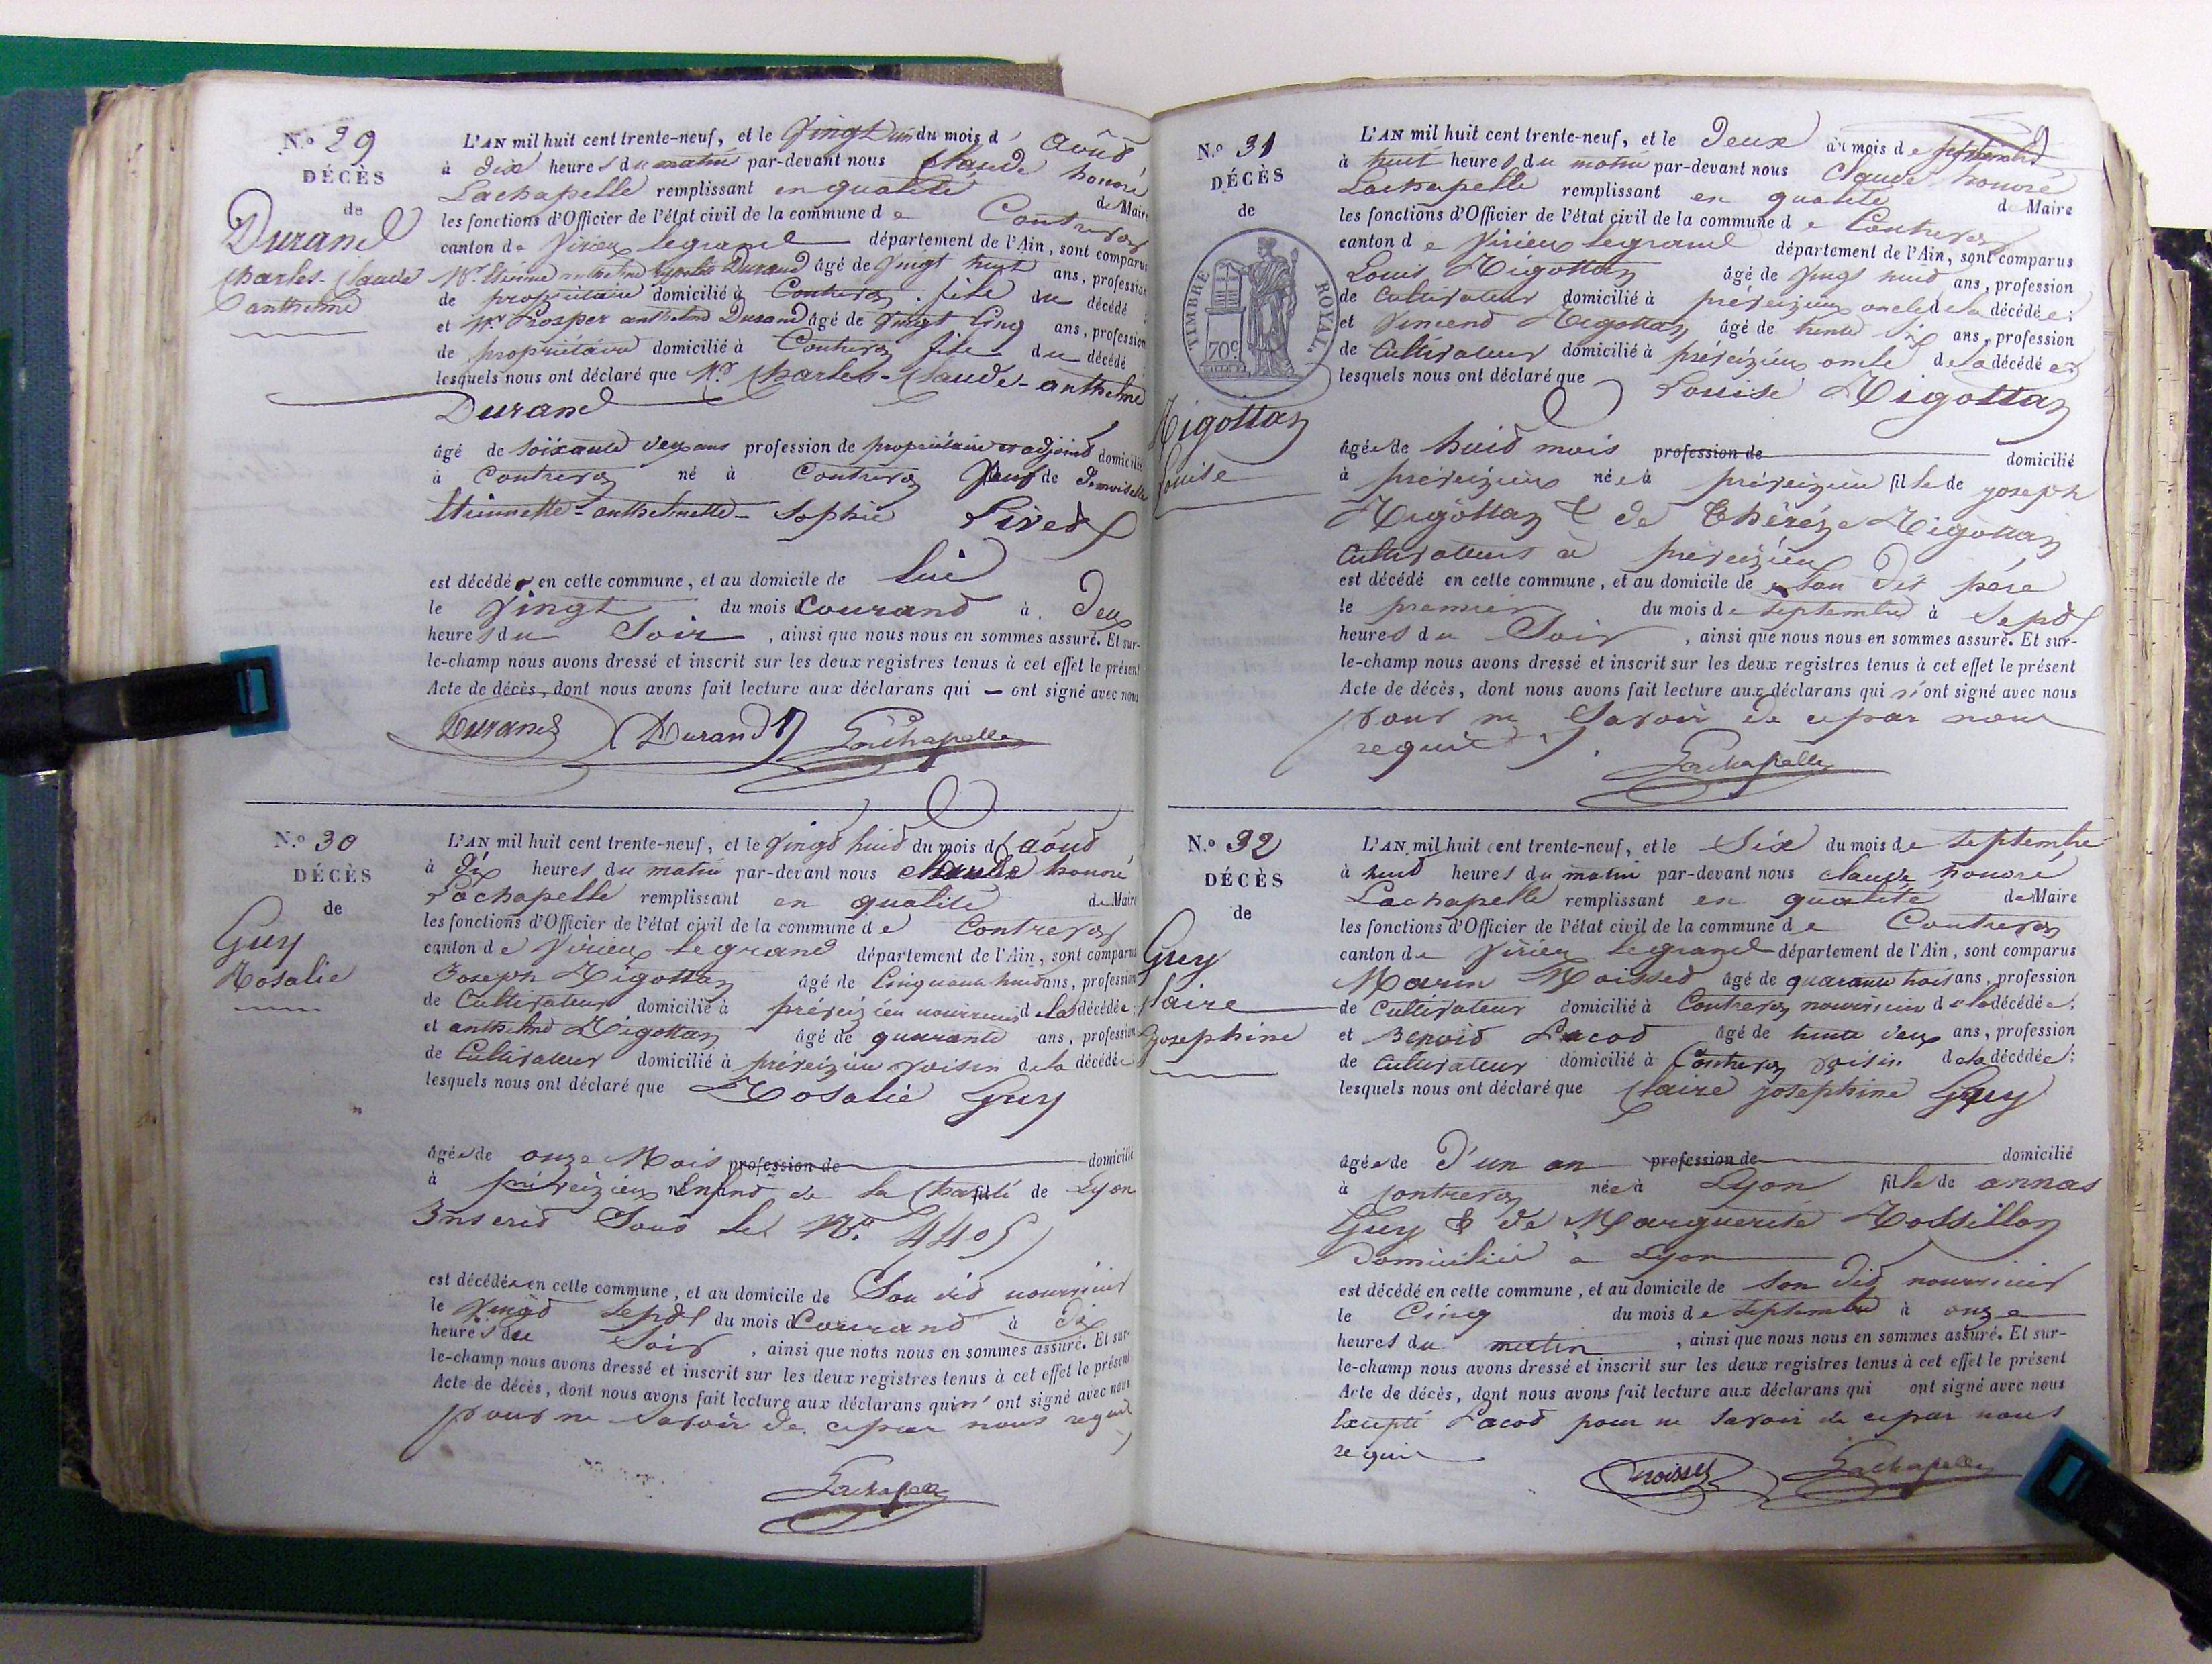 N.o 29
DÉCÈS
de
Durand
Charles-Claude
anthelme
L'AN mil huit cent trente-neuf, et le vingt un du mois d' Août
à dix heures du matin par-devant nous Claude honoré
Lachapelle remplissant en qualité de Maire
les fonctions d'Officier de l'état civil de la commune de Contrevoz
canton de Virieu legrand département de l'Ain, sont comparus
Mr. Etienne anthelme Durand âgé de vingt huit ans, profession
de propriétaire domicilié à Contrevoz fils du décédé
et Mr. Prosper anthelme Durand âgé de vingt cinq ans, profession
de propriétaire domicilié à Contrevoz fils du décédé
lesquels nous ont déclaré que Mr. Charles-Claude-anthelme
Durand
âgé de soixante deux ans profession de propriétaire et adjoint domicilié
à Contrevoz né à Contrevoz veuf de Demoiselle
Etiennette-anthelmette-Sophie Livet
est décédé en cette commune, et au domicile de lui
le vingt du mois courant à deux
heures du soir, ainsi que nous nous en sommes assuré. Et sur-
le-champ nous avons dressé et inscrit sur les deux registres tenus à cet effet le présent
Acte de décès, dont nous avons fait lecture aux déclarans qui — ont signé avec nous
Durand Durand Lachapelle
N.o 30
DÉCÈS
de
Guy
Rosalie
L'AN mil huit cent trente-neuf, et le vingt huit du mois d'août
à dix heures du matin par-devant nous Claude honoré
Lachapelle remplissant en qualité de Maire
les fonctions d'Officier de l'état civil de la commune de Contrevoz
canton de Virieu legrand département de l'Ain, sont comparus
Joseph Rigottaz âgé de cinquante huit ans, profession
de Cultivateur domicilié à préveizieu nourricier de la décédée;
et anthelme Rigottaz âgé de quarante ans, profession
de Cultivateur domicilié à préveizieu voisin de la décédée
lesquels nous ont déclaré que Rosalie Guy
âgée de onze Mois profession de domicilié
à préveizieu Enfant de la Charité de Lyon
Inscrit sous le No. 4405
est décédée en cette commune, et au domicile de Son dit nourricier
le vingt sept du mois Courant à dix
heures du Soir, ainsi que nous nous en sommes assuré. Et sur-
le-champ nous avons dressé et inscrit sur les deux registres tenus à cet effet le présent
Acte de décès, dont nous avons fait lecture aux déclarans qui n'ont signé avec nous
pour ne savoir de ce par nous requis
Lachapelle
N.o 31
DÉCÈS
de
TIMBRE ROYAL.
70c
Rigottaz
Louise
L'AN mil huit cent trente-neuf, et le Deux du mois de septembre
à huit heures du matin par-devant nous Claude honoré
Lachapelle remplissant en qualité de Maire
les fonctions d'Officier de l'état civil de la commune de Contrevoz
canton de Virieu Legrand département de l'Ain, sont comparus
Louis Rigottaz âgé de vingt huit ans, profession
de Cultivateur domicilié à préveizieu oncle de la décédée;
et Vincend Rigottaz âgé de trente six ans, profession
de Cultivateur domicilié à préveizieu oncle de la décédée
lesquels nous ont déclaré que Louise Rigottaz
âgée de huit mois profession de domicilié
à préveizieu née à préveizieu fille de joseph
Rigottaz & de Thérèze Rigottaz
Cultivateurs à préveizieu
est décédé en cette commune, et au domicile de Son dit père
le premier du mois de septembre à Sept
heures du Soir, ainsi que nous nous en sommes assuré. Et sur-
le-champ nous avons dressé et inscrit sur les deux registres tenus à cet effet le présent
Acte de décès, dont nous avons fait lecture aux déclarans qui n'ont signé avec nous
pour ne Savoir de ce par nous
requis.
Lachapelle
N.o 32
DÉCÈS
de
Guy
Claire
Josephine
L'AN mil huit cent trente-neuf, et le Six du mois de septembre
à huit heures du matin par-devant nous Claude honoré
Lachapelle remplissant en qualité de Maire
les fonctions d'Officier de l'état civil de la commune de Contrevoz
canton de Virieu Legrand département de l'Ain, sont comparus
Marin Moisset âgé de quarante trois ans, profession
de Cultivateur domicilié à Contrevoz nourricier de la décédée;
et Benoit Lacod âgé de trente deux ans, profession
de Cultivateur domicilié à Contrevoz voisin de la décédée;
lesquels nous ont déclaré que Claire josephine Guy
âgée de D'un an profession de domicilié
à Contrevoz née à Lyon fille de annas
Guy & de Marguerite Rossillon
Domicilié à Lyon
est décédé en cette commune, et au domicile de Son dit nourricier
le Cinq du mois de septembre à onze
heures du matin, ainsi que nous nous en sommes assuré. Et sur-
le-champ nous avons dressé et inscrit sur les deux registres tenus à cet effet le présent
Acte de décès, dont nous avons fait lecture aux déclarans qui ont signé avec nous
Excepté Lacod pour ne savoir de ce par nous
requis
Moisset Lachapelle